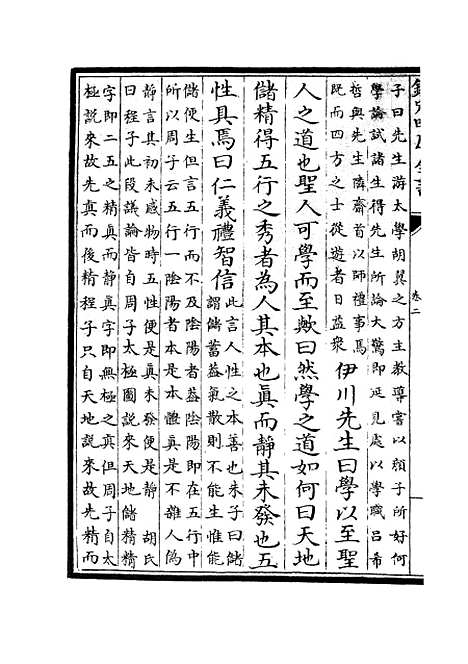 欽定四庫全書
卷二
子曰先生游太學胡翼之方主教導嘗以顔子所好何
學論試諸生得先生所論大驚即延見處以學職吕希
哲與先生隣齋首以師禮事焉
既而四方之士從遊者日益衆
伊川先生曰學以至聖
人之道也聖人可學而至歟曰然學之道如何曰天地
儲精得五行之秀者為人其本也真而静其未發也五
性具焉曰仁義禮智信
此言人性之本善也朱子曰儲
謂儲蓄葢氣散則不能生惟能
儲便生但言五行而不及陰陽者葢陰陽即在五行中
所以周子云五行一陰陽者本是本體真是不雜人偽
静言其初未感物時五性便是真未發便是静　胡氏
曰程子此段議論皆自周子太極圖說來天地儲精精
字即二五之精真而静真字即無極之真但周子自太
極說來故先真而後精程子只自天地說來故先精而